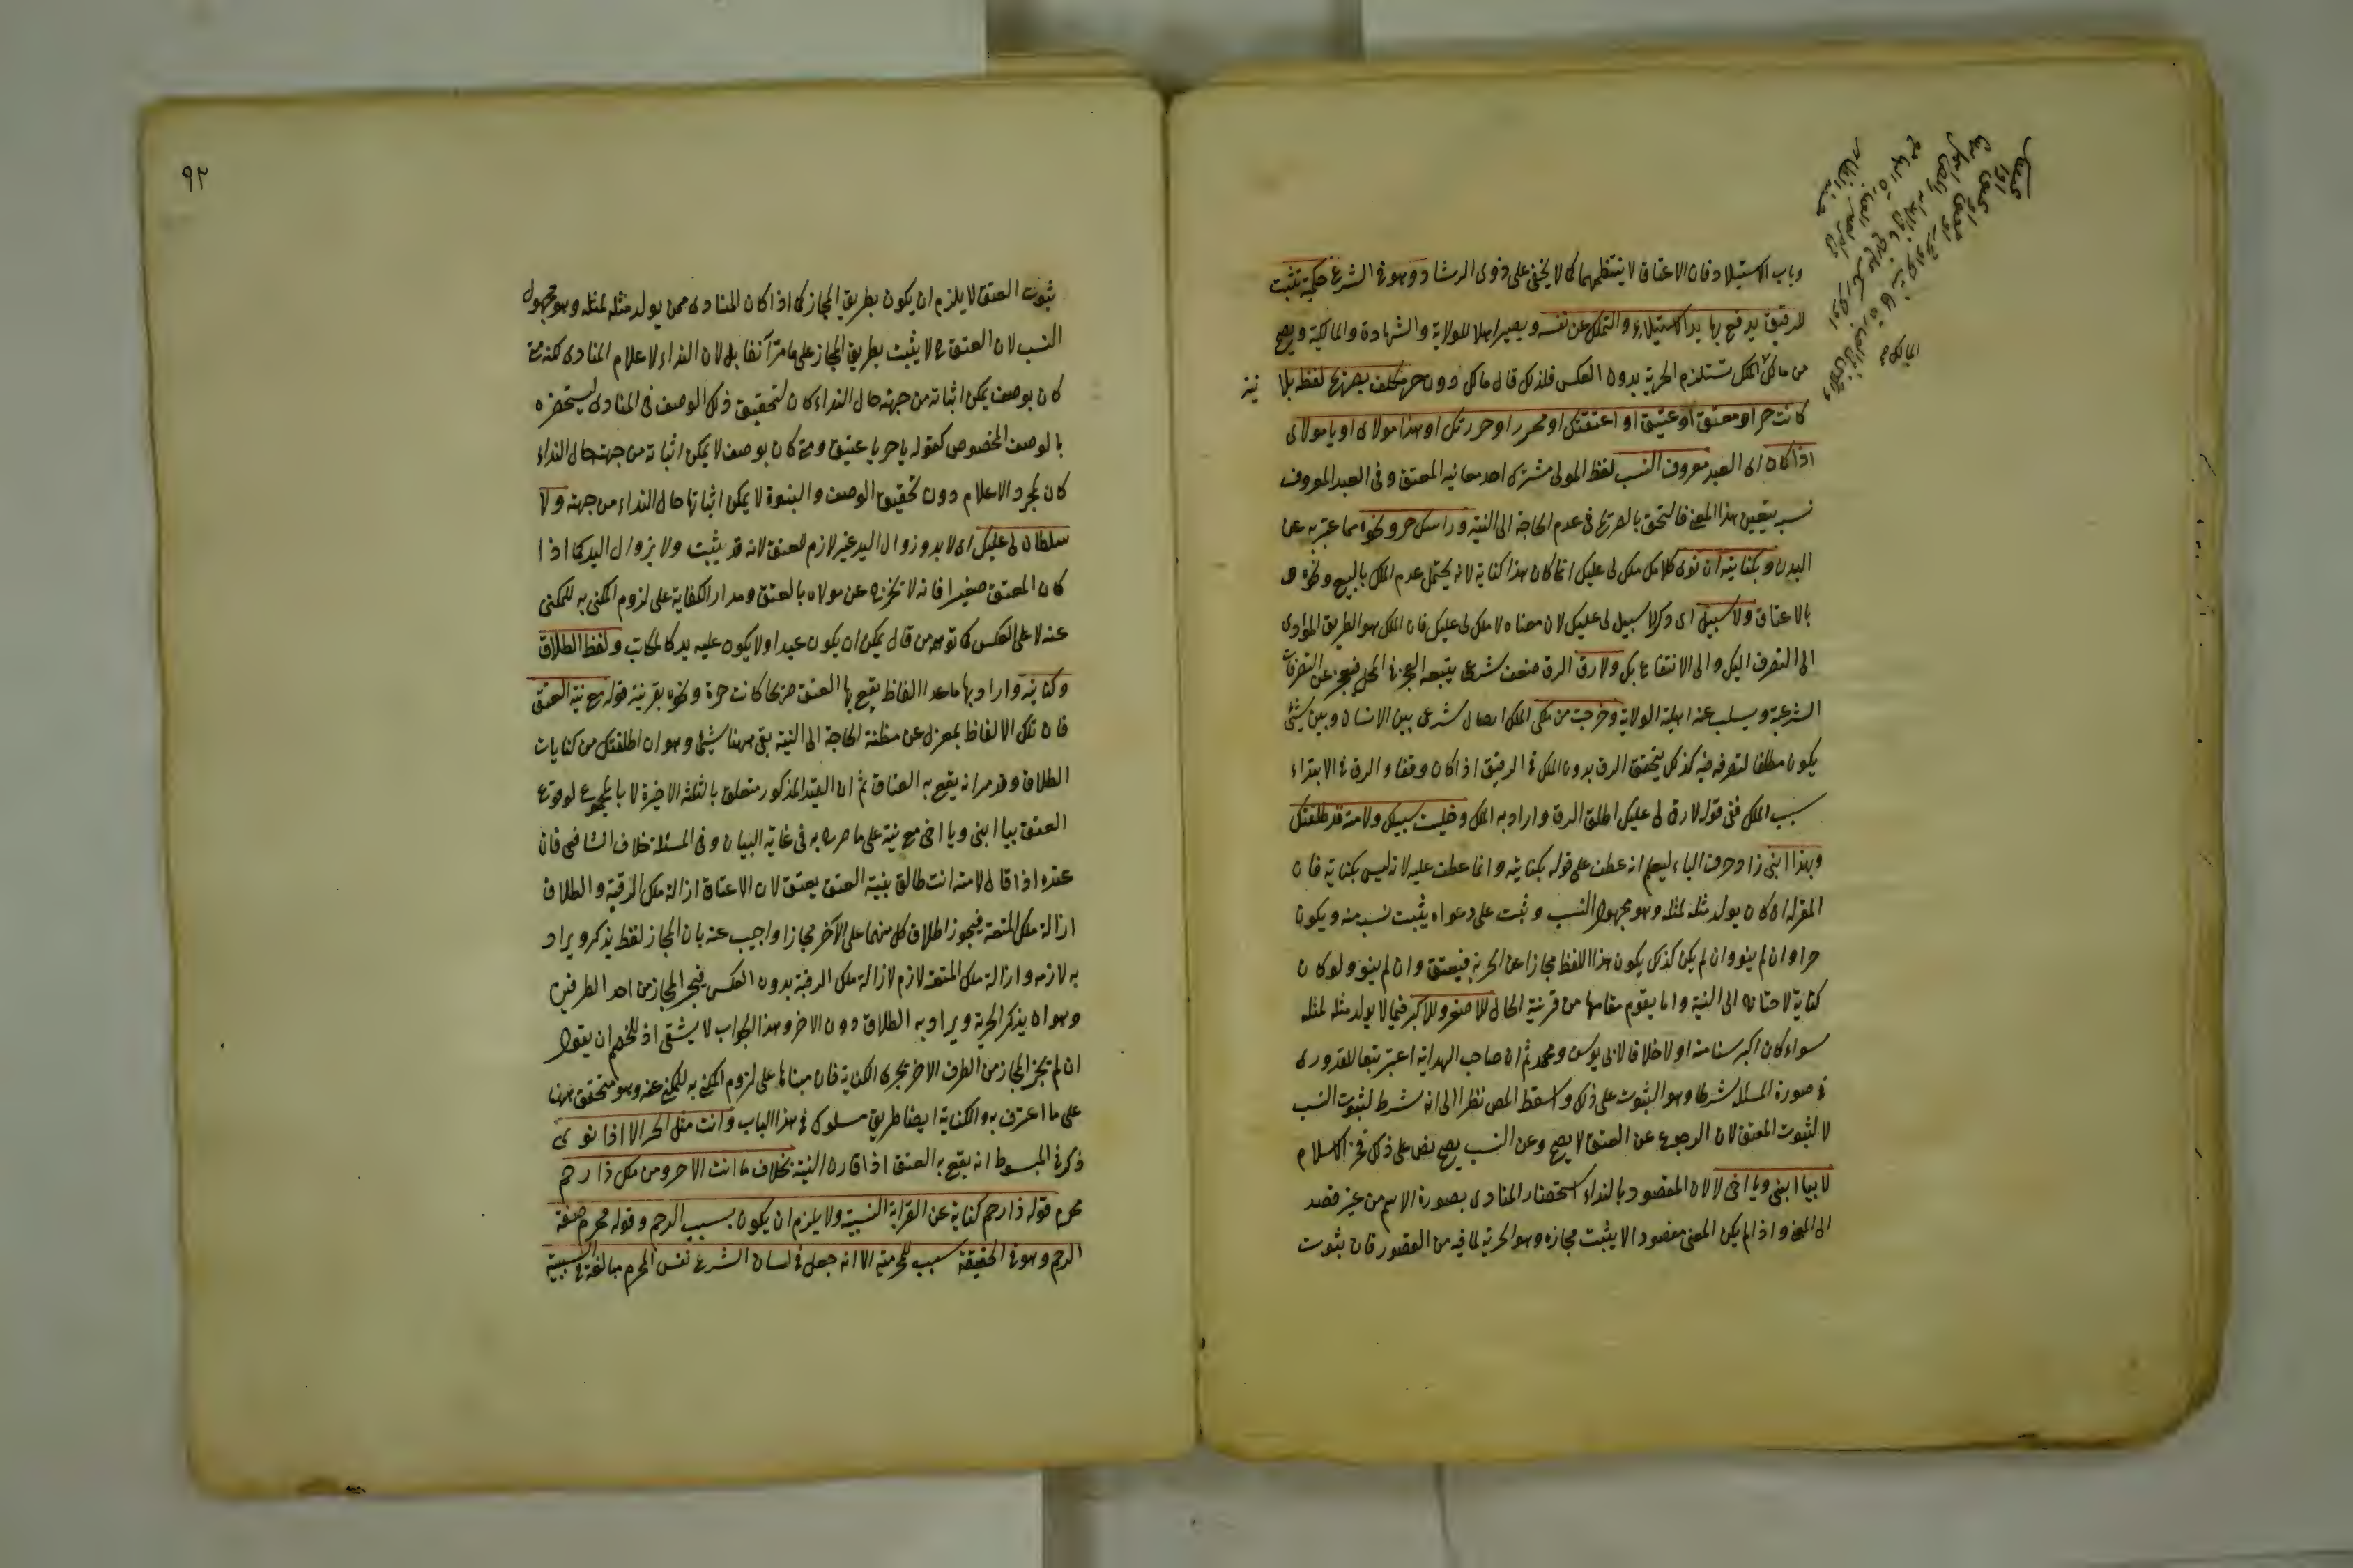 وباب الاستيلاد فان الاعتاق لا ينتظمهما كما لا يخفى على ذوى الرشاد وهو فى الشرع حكمية تثبت
للرقيق يدفع بها يد الاستيلاء والتملك عن نفسه ويصير اهلا للولاية والشهادة والمالكية ويصح
من مالك الملك تستلزم الحرية بدون العكس فلذلك قال مالك دون حر مكلف بصريح لفظه بلا نية
كانت حر او معتق او عتيق او اعتقتك او محرر او حررتك او هذا مولاى او يا مولاى
اذا كان اى العبد معروف النسب لفظ المولى مشترك احد معانيه المعتق وفى العبد المعروف
نسبه يتعين هذا المعنى فالتحق بالصريح فى عدم الحاجة الى النية وراسك حر ونحوه مما عبر به عن
البدن وبكنايته ان نوى كلا ملك لى عليك انما كان هذا كناية لانه يحتمل عدم الملك بالبيع ونحوه و
بالاعتاق ولا سبيل اى وكلا سبيل لى عليك لان معناه لا ملك لى عليك فان الملك هو الطريق المؤدى
الى التصرف اليك والى الانتفاع بك ولا رق الرق ضعف شرعى يتبعه العجز فى المحل فيعجز عن التصرفات
الشرعية ويسلب عنه اهلية الولاية وخرجت من ملكى الملك اتصال شرعى بين الانسان وبين شئ
يكون مطلقا لتصرفه فيه كذلك يتحقق الرق بدون الملك فى الرقيق اذا كان وقفا والرق فى الابتداء
سبب الملك ففى قوله لا رق لى عليك اطلق الرق واراد به الملك وخليت سبيلك ولامته قد طلقتك
وبهذا ابنى زاد حرف الباء ليعلم انه عطف على قوله بكنايته وانما عطف عليه لانه ليس بكناية فان
المقر له ان كان يولد مثله لمثله وهو مجهول النسب وثبت على دعواه يثبت نسبه منه ويكون
حرا وان لم ينو وان لم يكن كذلك يكون هذا اللفظ مجازا عن الحرية فيعتق وان لم ينو ولو كان
كناية لاحتاج الى النية واما يقوم مقامها من قرينة الحال للاصغر وللاكبر فيما لا يولد مثله لمثله
سواء كان اكبر سنا منه اولا خلافا لابى يوسف ومحمد ثم ان صاحب الهداية اعتبر تبعا للقدورى
فى صورة المسئلة شرطا وهو الثبوت على ذلك واسقط المص نظرا الى انه شرط لثبوت النسب
لا لثبوت العتق لان الرجوع عن العتق لا يصح وعن النسب يصح نص على ذلك فخر الاسلام
لا بيا ابنى ويا اخى لان المقصود بالنداء استحضار المنادى بصورة الاسم من غير قصد
الى المعنى واذا لم يكن المعنى مقصودا لا يثبت مجازه وهو الحرية لما فيه من القصور فان ثبوت
٩٢
ثبوت العتق لا يلزم ان يكون بطريق المجاز كما اذا كان المنادى ممن يولد مثله لمثله وهو مجهول
النسب لان العتق ح لا يثبت بطريق المجاز على ما مر آنفا بل لان النداء لاعلام المنادى لكنه متى
كان بوصف يمكن اثباته من جهته حال النداء كان لتحقيق ذلك الوصف فى المنادى ليستحضره
بالوصف المخصوص كقوله يا حر يا عتيق ومتى كان بوصف لا يمكن اثباته من جهته حال النداء
كان لمجرد الاعلام دون تحقيق الوصف والبنوة لا يمكن اثباتها حال النداء من جهته ولا
سلطان لى عليك اى لا يد وزوال اليد غير لازم للعتق لانه قد يثبت ولا يزول اليد كما اذا
كان المعتق صغيرا فانه لا تخرج عن مولاه بالعتق ومدار الكناية على لزوم المكنى به للمكنى
عنه لا على العكس كما توهم من قال يمكن ان يكون عبدا ولا يكون عليه يد كالمكاتب ولفظ الطلاق
وكنايته واراد بها ما عدا الفاظ يقع بها العتق صريحا كانت حرة ونحوه بقرينة قوله مع نية العتق
فان تلك الالفاظ بمعزل عن مظنة الحاجة الى النية بقى ههنا شئ وهو ان اطلقتك من كنايات
الطلاق وقد مر انه يقع به العتاق ثم ان القيد المذكور متعلق بالثلثة الاخيرة لا بالمجموع لوقوع
العتق بيا ابنى ويا اخى مع نية على ما صرح به فى غاية البيان وفى المسئلة خلاف الشافعى فان
عنده اذا قال لامته انت طالق بنية العتق يعتق لان الاعتاق ازالة ملك الرقبة والطلاق
ازالة ملك المتعة فيجوز اطلاق كل منهما على الآخر مجازا واجيب عنه بان المجاز لفظ يذكر ويراد
به لازمه وازالة ملك المتعة لازم لازالة ملك الرقبة بدون العكس فيجز المجاز من احد الطرفين
وهو ان يذكر الحرية ويراد به الطلاق دون الاخر وهذا الجواب لا يشفى اذ للخصم ان يقول
ان لم تجز المجاز من الطرف الاخر تجرى الكناية فان مبناها على لزوم المكنى به للمكنى عنه وهو متحقق ههنا
على ما اعترف به والكناية ايضا طريق مسلوك فى هذا الباب وانت مثل الحر الا اذا نوى
ذكر فى المبسوط انه يقع به العتق اذا قارن النية بخلاف ما انت الا حر ومن ملك ذا رحم
محرم قوله ذا رحم كناية عن القرابة النسبية ولا يلزم ان يكون بسبب الرحم وقوله محرم صفة
الرحم وهو فى الحقيقة سبب للحرمية الا انه جعل فى لسان الشرع نفس المحرم مبالغة فى السببية